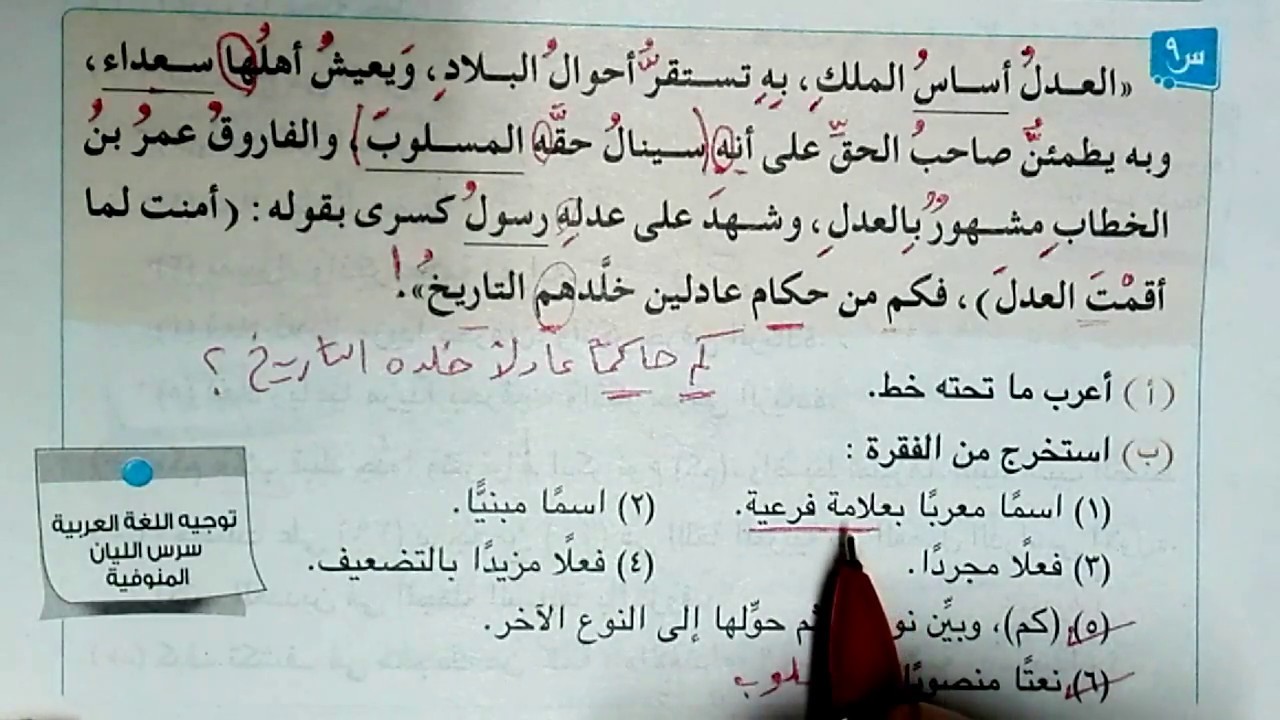 س٩
«العدلُ أساسُ الملكِ، بِهِ تستقرُّ أحوالُ البلادِ، وَيعيشُ أهلُها سعداء،
وبه يطمئنُّ صاحبُ الحقِّ على أنه (سينالُ حقَّه المسلوبَ) والفاروقُ عمرُ بنُ
الخطابِ مشهورٌ بِالعدلِ، وشهدَ على عدلِهِ رسولُ كسرى بقوله: (أمنت لما
أقمْتَ العدلَ)، فكم من حكام عادلين خلَّدهم التاريخُ»!
كم حاكمًا عادلًا خلده التاريخ؟
(أ) أعرب ما تحته خط.
(ب) استخرج من الفقرة :
(١) اسمًا معربًا بعلامة فرعية. (٢) اسمًا مبنيًّا.
(٣) فعلًا مجردًا. (٤) فعلًا مزيدًا بالتضعيف.
(٥) (كم)، وبيِّن حوِّلها إلى النوع الآخر.
(٦) نعتًا
توجيه اللغة العربية
سرس الليان
المنوفية